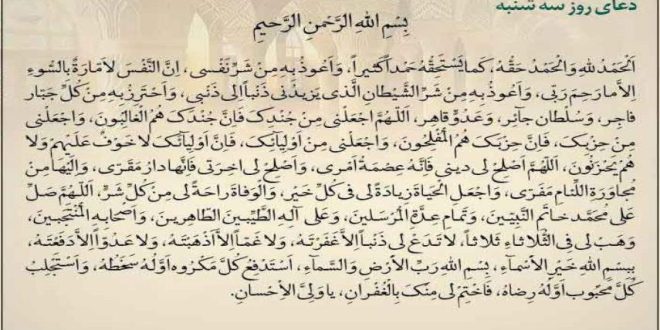 دعای روز سه شنبه
بِسْمِ اللهِ الرَّحْمنِ الرَّحيمِ
اَلْحَمْدُ لِلّهِ وَالْحَمْدُ حَقُّهُ، كَما يَسْتَحِقُّهُ حَمْداً كَثيراً، وَاَعُوذُ بِهِ مِنْ شَرِّ نَفْسى، اِنَّ النَّفْسَ لاَمّارَةٌ بِالسُّوءِ
اِلاّ ما رَحِمَ رَبّى، وَاَعُوذُ بِهِ مِنْ شَرِّ الشَّيْطانِ الَّذى يَزيدُنى ذَنْباً اِلى ذَنْبى، وَاَحْتَرِزُ بِهِ مِنْ كُلِّ جَبّارٍ
فاجِرٍ، وَسُلْطانٍ جائِرٍ، وَعَدُوٍّ قاهِرٍ، اَللّهُمَّ اجْعَلْنى مِنْ جُنْدِكَ فَاِنَّ جُنْدَكَ هُمُ الْغالِبُونَ، وَاجْعَلْنى
مِنْ حِزْبِكَ، فَاِنَّ حِزْبَكَ هُمُ الْمُفْلِحُونَ، وَاجْعَلْنى مِنْ اَوْلِيآئِكَ، فَاِنَّ اَوْلِيآئَكَ لا خَوْفٌ عَلَيْهِمْ وَلا
هُمْ يَحْزَنُونَ، اَللّهُمَّ اَصْلِحْ لى دينى فَاِنَّهُ عِصْمَةُ اَمْرى، وَاَصْلِحْ لى اخِرَتى فَاِنَّها دارُ مَقَرّى، وَاِلَيْها مِنْ
مُجاوَرَةِ اللِّئامِ مَفَرّى، وَاجْعَلِ الْحَياةَ زِيادَةً لى فى كُلِّ خَيْرٍ، وَالْوَفاةَ راحَةً لى مِنْ كُلِّ شَرٍّ، اَللّهُمَّ صَلِّ
عَلى مُحَمَّدٍ خاتَمِ النَّبِيّينَ، وَتَمامِ عِدَّةِ الْمُرْسَلينَ، وَعَلى آلِهِ الطَّيِّبينَ الطّاهِرينَ، وَاَصْحابِهِ الْمُنْتَجَبينَ،
وَهَبْ لى فِى الثُّلاثاءِ ثَلاثاً، لا تَدَعْ لى ذَنْباً اِلاّ غَفَرْتَهُ، وَلا غَمّاً اِلاّ اَذْهَبْتَهُ، وَلا عَدُوّاً اِلاّ دَفَعْتَهُ،
بِبِسْمِ اللهِ خَيْرِ الاَْسْماءِ، بِسْمِ اللهِ رَبِّ الاَْرْضِ وَالسَّماءِ، اَسْتَدْفِعُ كُلَّ مَكْرُوهٍ اَوَّلُهُ سَخَطُهُ، وَاَسْتَجْلِبُ
كُلَّ مَحْبُوبٍ اَوَّلُهُ رِضاهُ، فَاخْتِمْ لى مِنْكَ بِالْغُفْرانِ، يا وَلِىَّ الاِْحْسانِ.